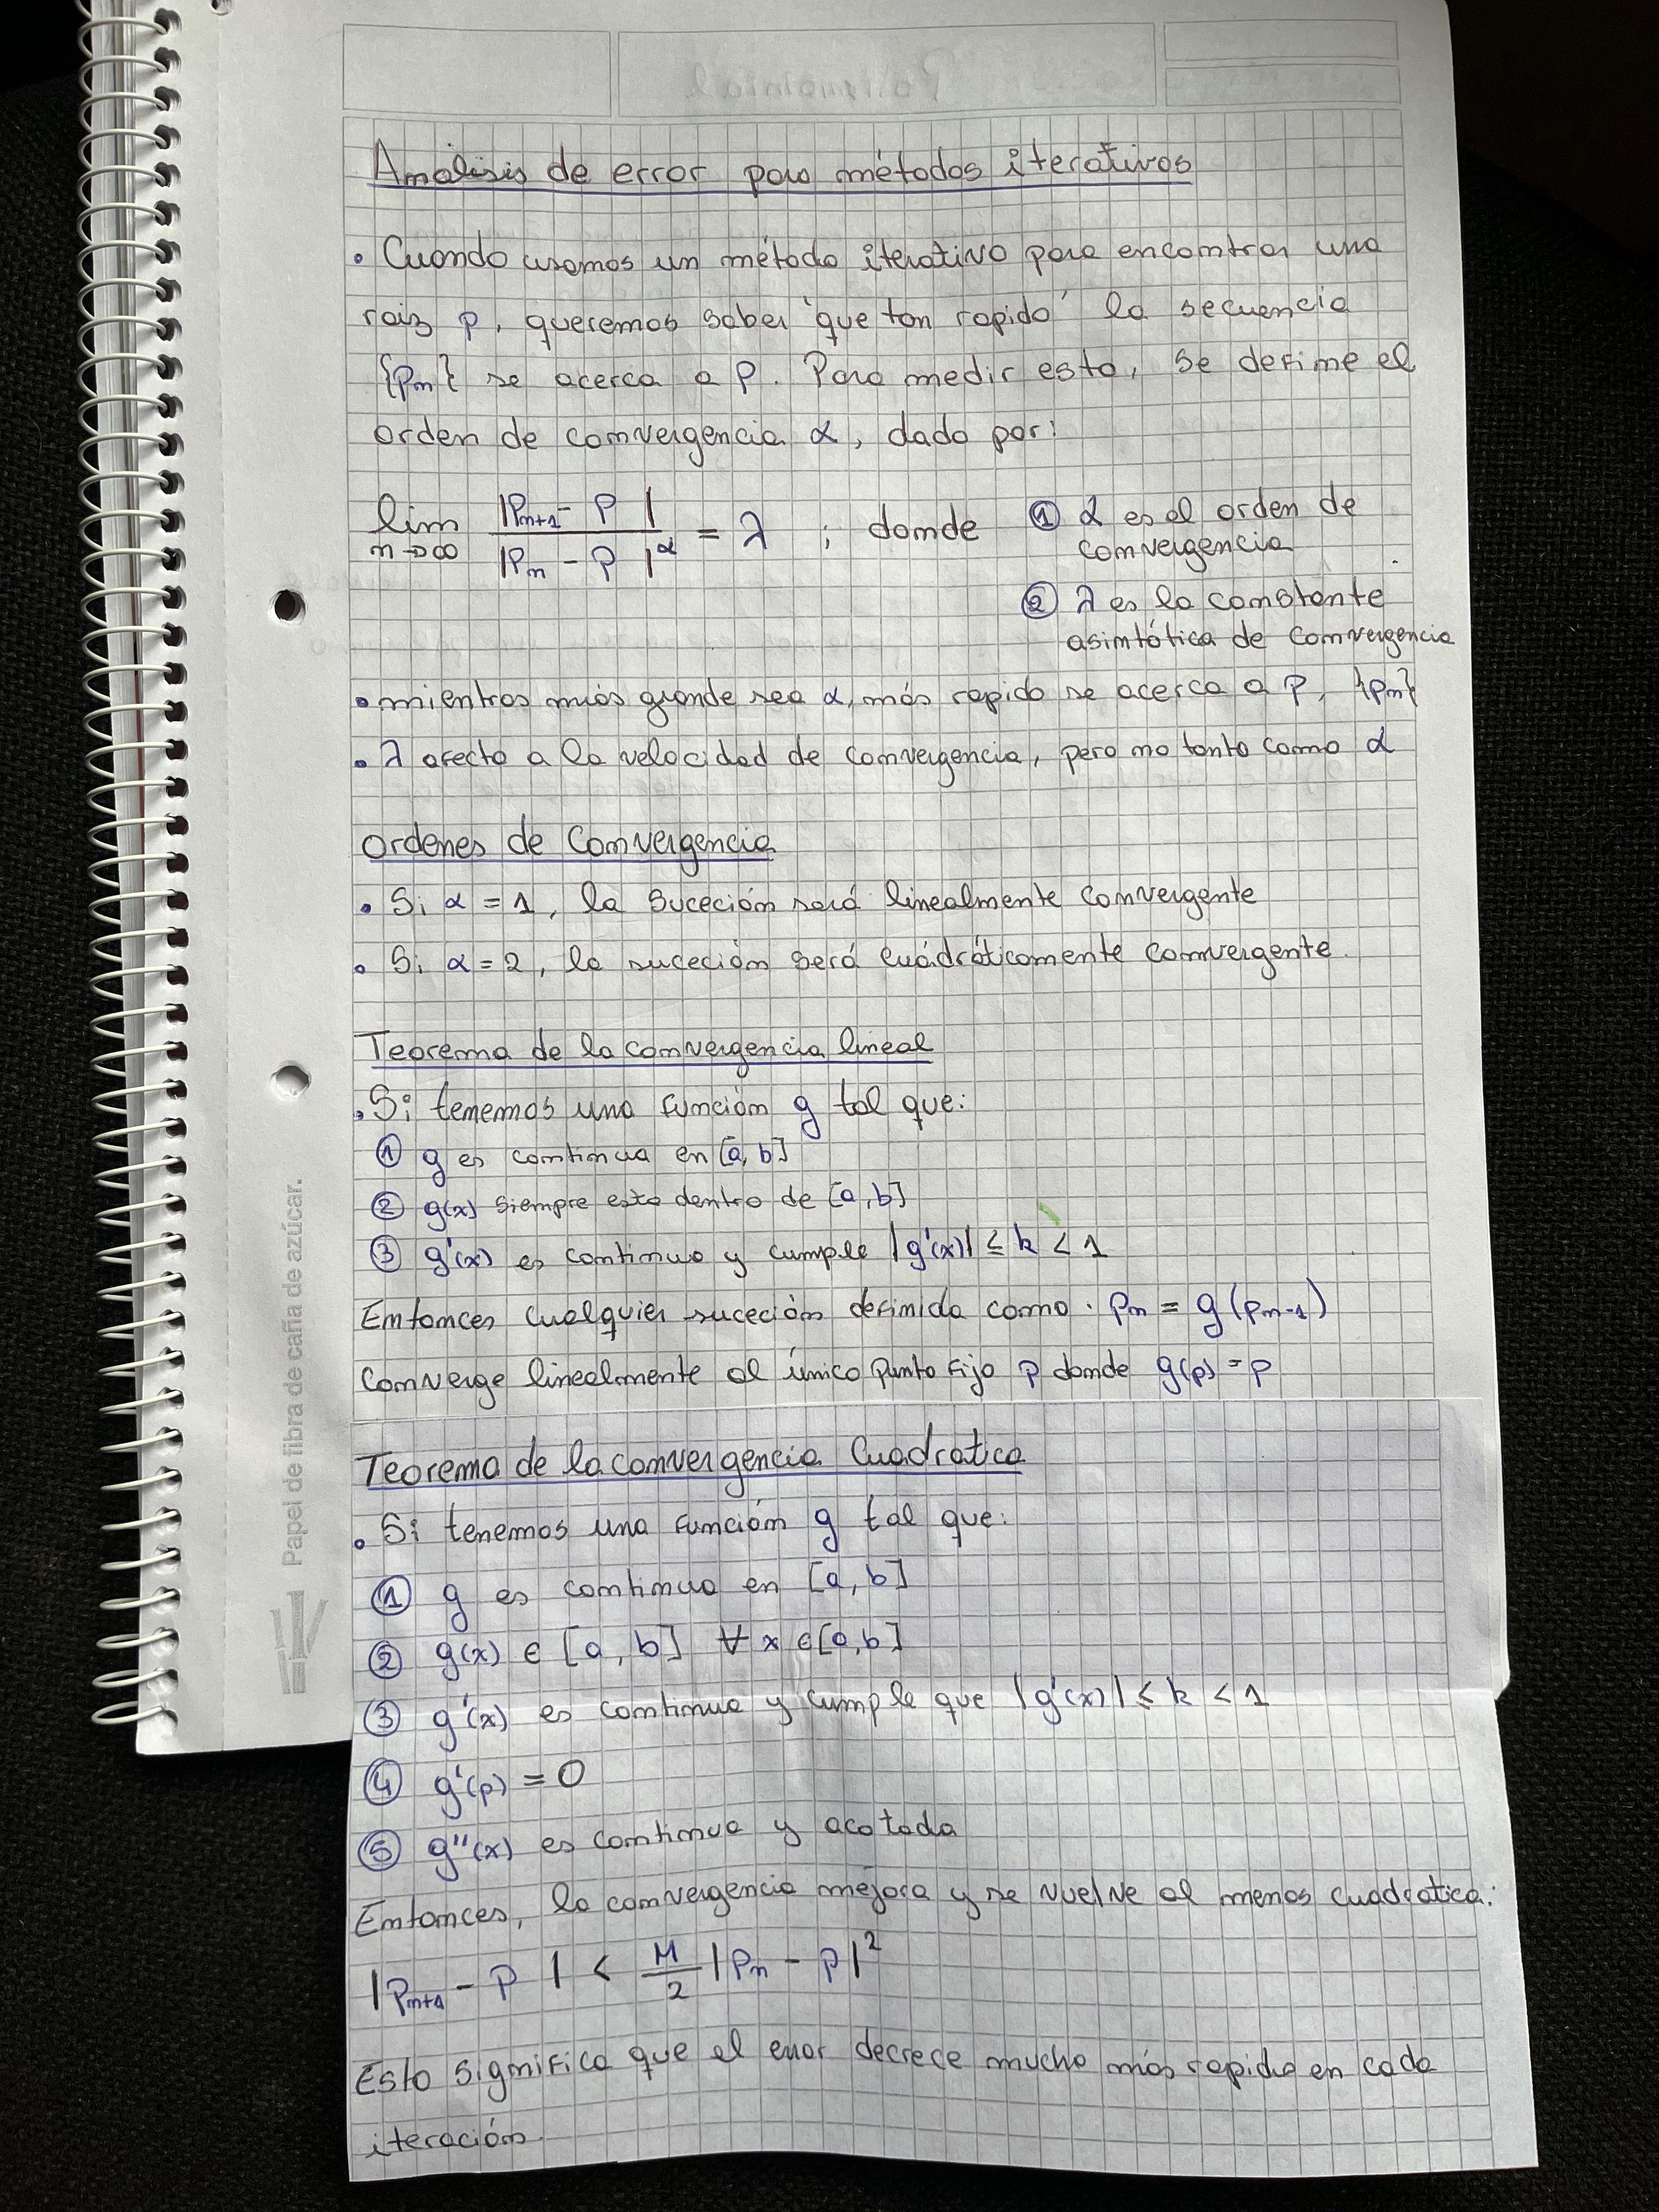 Análisis de error para métodos iterativos
• Cuando usamos un método iterativo para encontrar una
raiz p, queremos saber "que tan rapido" la secuencia
{Pn} se acerca a P. Para medir esto, se define el
orden de convergencia α, dado por:
lim n→∞ |Pn+1 - P| / |Pn - P|^α = λ ; donde ① α es el orden de
convergencia
② λ es la constante
asimtótica de convergencia
• mientras más grande sea α, más rapido se acerca a P, {Pn}
• λ afecta a la velocidad de convergencia, pero no tanto como α
Ordenes de Convergencia
• Si α = 1, la suceción será linealmente convergente
• Si α = 2, la suceción será cuádráticamente convergente.
Teorema de la convergencia lineal
• Si tenemos una función g tal que:
① g es continua en [a, b]
② g(x) siempre esta dentro de [a, b]
③ g'(x) es continua y cumple |g'(x)| ≤ k < 1
Entonces cualquier suceción definida como: Pn = g(Pn-1)
converge linealmente al único punto fijo P donde g(p) = p
Teorema de la convergencia Cuadratica
• Si tenemos una función g tal que:
① g es continua en [a, b]
② g(x) ∈ [a, b] ∀ x ∈ [a, b]
③ g'(x) es continua y cumple que |g'(x)| ≤ k < 1
④ g'(p) = 0
⑤ g''(x) es continua y acotada
Entonces, la convergencia mejora y se vuelve al menos cuadratica:
|Pn+1 - P| < M/2 |Pn - P|²
Esto significa que el error decrece mucho más rapido en cada
iteración.
Papel de fibra de caña de azúcar.